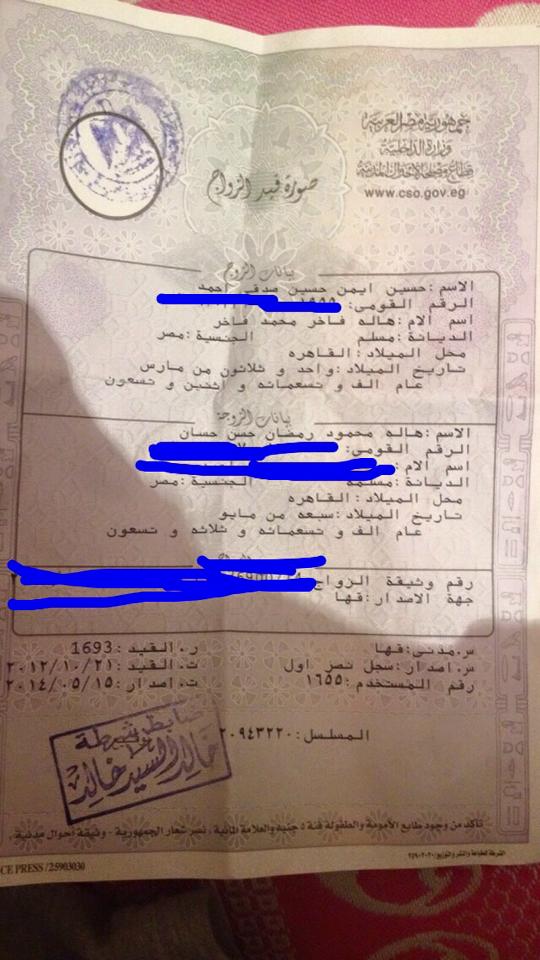 جمهورية مصر العربية
وزارة الداخلية
قطاع مصلحة الأحوال المدنية
www.cso.gov.eg
صورة قيد الزواج
بيانات الزوج
الاسم: حسين ايمن حسين صدقى احمد
الرقم القومى:
اسم الام: هاله فاخر محمد فاخر
الديانة: مسلم الجنسية: مصر
محل الميلاد: القاهره
تاريخ الميلاد: واحد و ثلاثون من مارس
عام الف و تسعمائه و اثنين و تسعون
بيانات الزوجة
الاسم: هاله محمود رمضان حسن حسان
الرقم القومى:
اسم الام:
الديانة: مسلمه الجنسية: مصر
محل الميلاد: القاهره
تاريخ الميلاد: سبعه من مايو
عام الف و تسعمائه و ثلاثه و تسعون
رقم وثيقة الزواج
جهة الاصدار: قها
س.مدنى: قها ر.القيد: 1693
س.اصدار: سجل نصر اول ت.القيد: ٢٠١٢/١٠/٢١
رقم المستخدم: ١٦٥٥ ت.اصدار: ٢٠١٤/٠٥/١٥
المسلسل: ٢٠٩٤٣٢٢٠
ضابط شرطة
خالد السيد خالد
تأكد من وجود طابع الأمومة والطفولة فئة ٥ جنية والعلامة المائية ، نسر شعار الجمهورية - وثيقة أحوال مدنية .
CE PRESS /25903030